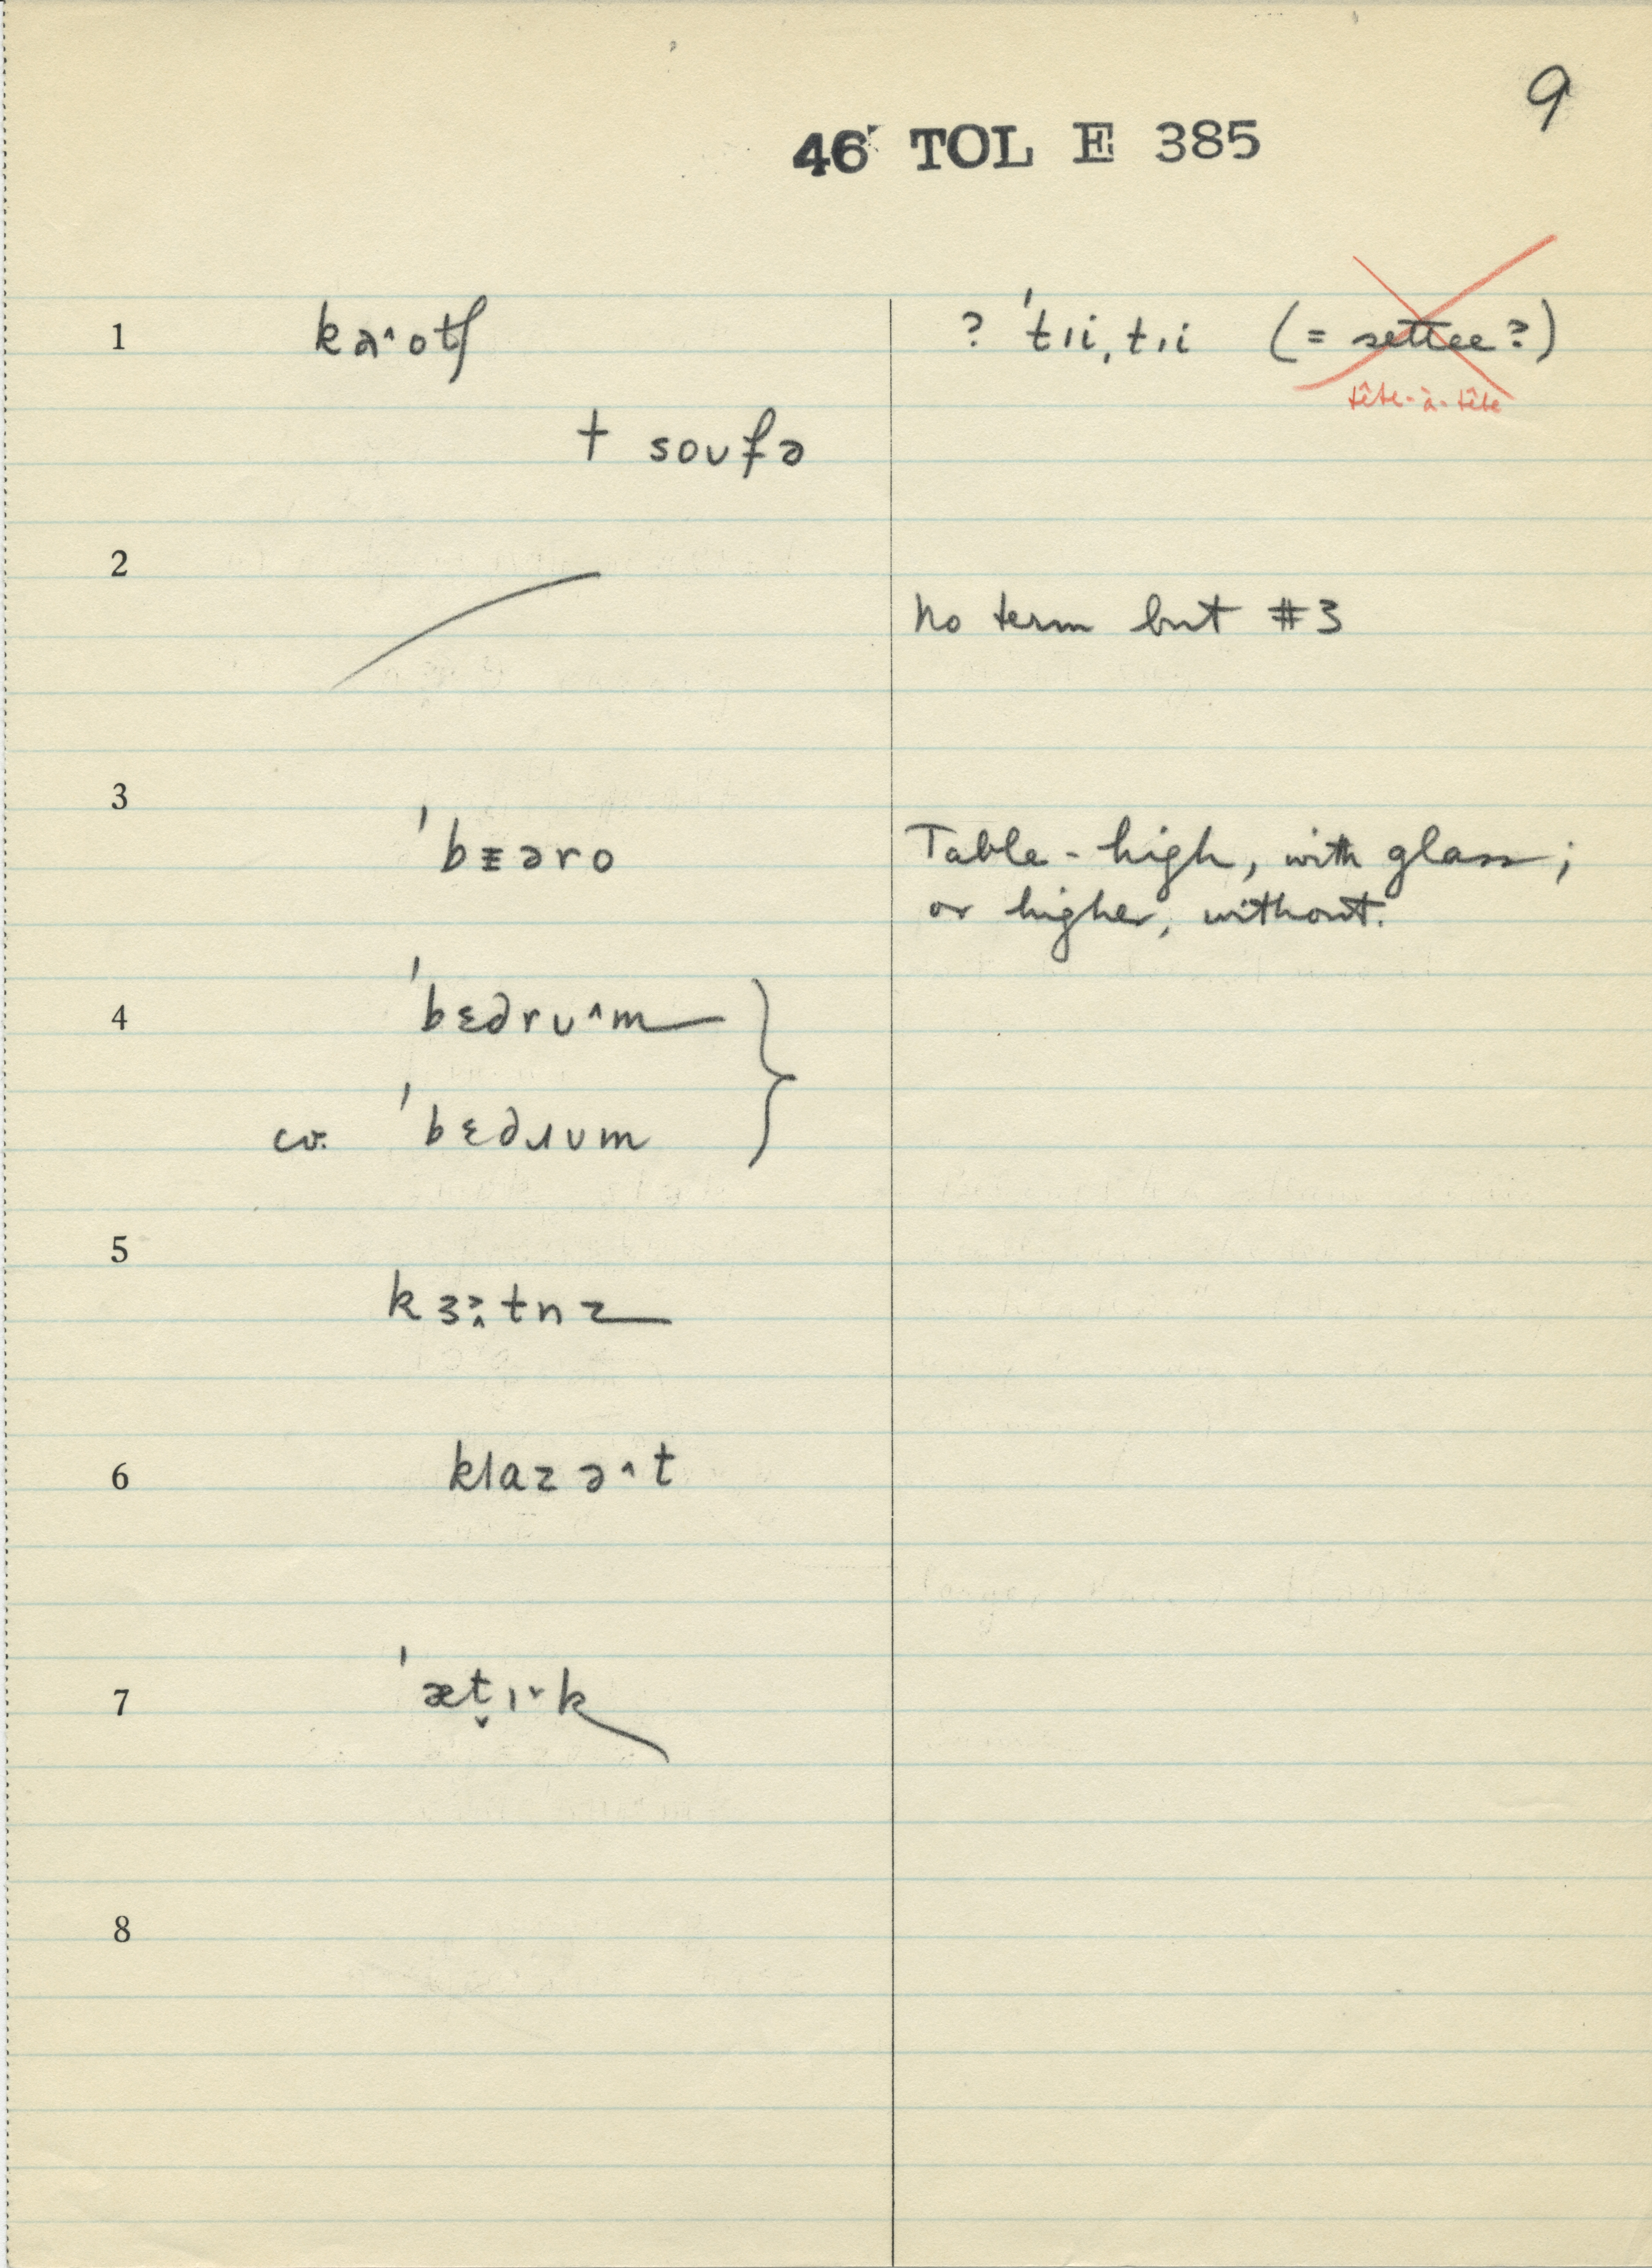 9
46 TOL E 385
1 kɑ˄otʃ ? ˈtɪi ˌtɪi (= settee?)
tête-à-tête
† soʊfə
2 No term but #3
3 ˈbɛəro Table-high, with glass;
or higher, without.
4 ˈbɛdrʊ˄m
cv. ˈbɛdɹʊm
5 kɜ˞tnz
6 klazə˄t
7 ˈæt̬ɪ˅k
8